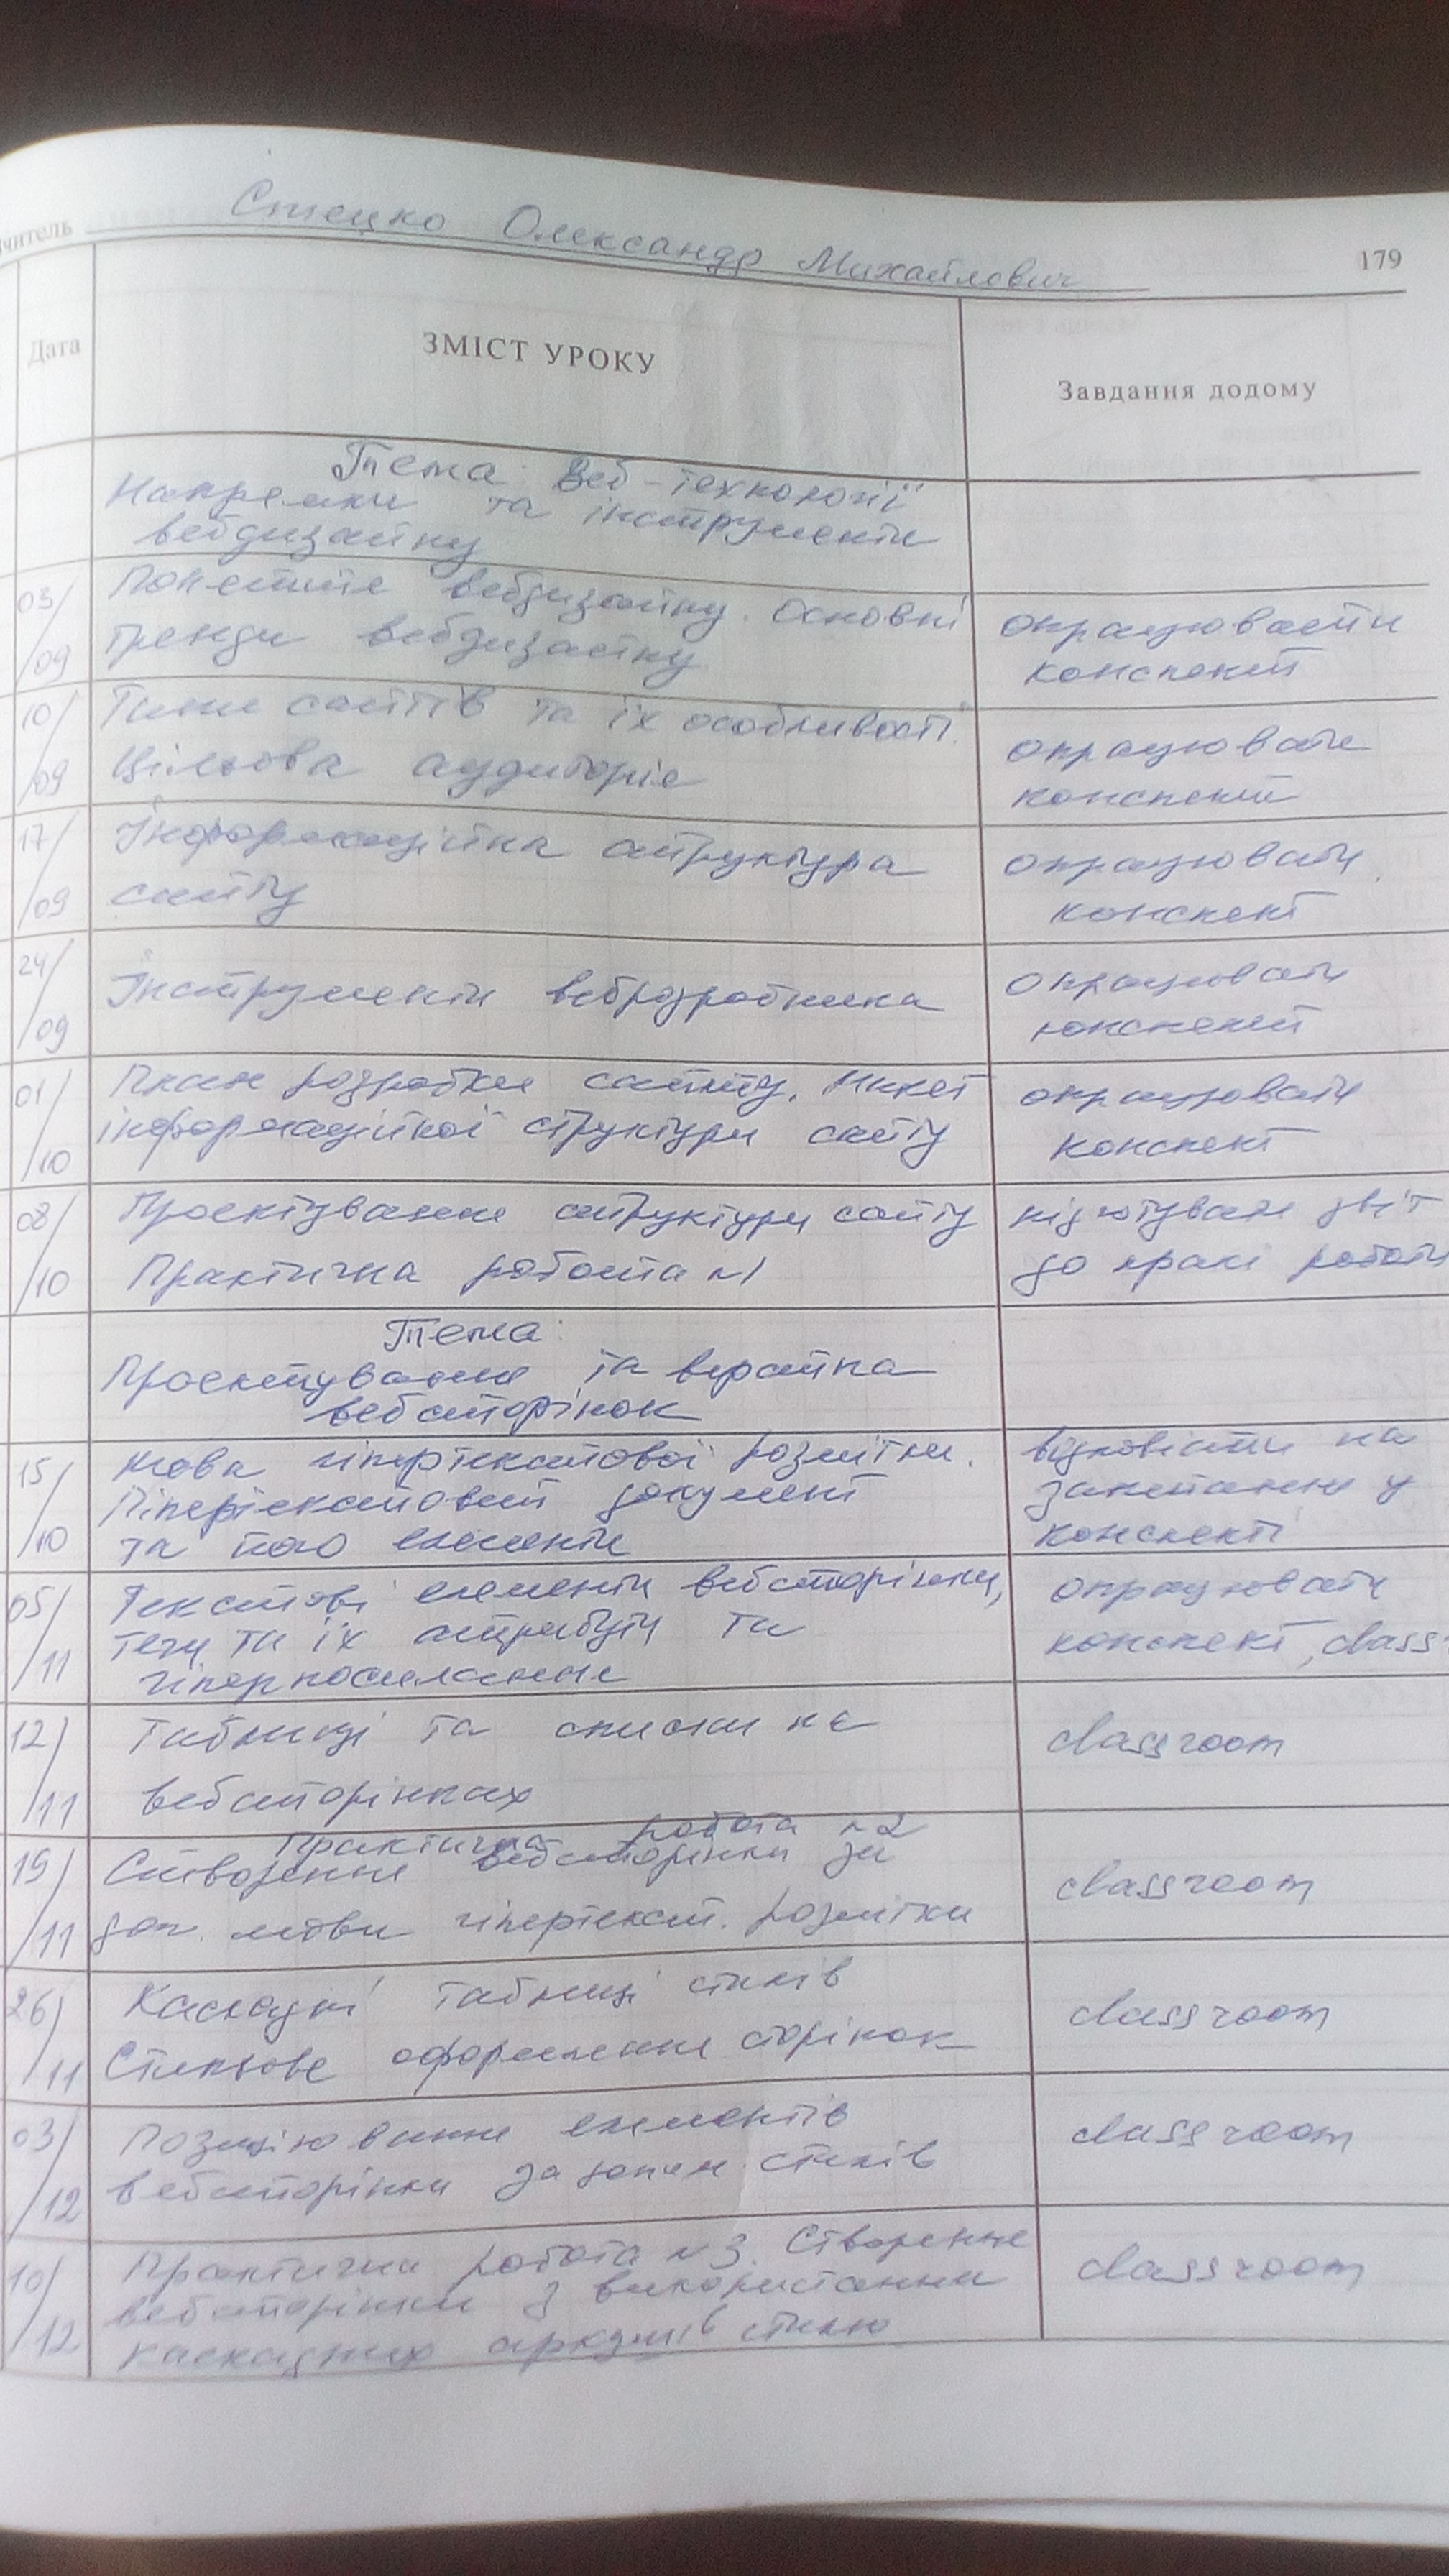 читель Стецко Олександр Михайлович 179
Дата ЗМІСТ УРОКУ Завдання додому
Тема: Веб-технології
Напрямки та інструменти
вебдизайну
03/09 Поняття вебдизайну. Основні
тренди вебдизайну
опрацювати
конспект
10/09 Типи сайтів та їх особливості.
Цільова аудиторія
опрацювати
конспект
17/09 Інформаційна структура
сайту
опрацювати
конспект
24/09 Інструменти веброзробника
опрацювати
конспект
01/10 План розробки сайту. Макет
інформаційної структури сайту
опрацювати
конспект
08/10 Проєктування структури сайту
Практична робота №1
підготувати звіт
до практ роботи
Тема:
Проектування та верстка
вебсторінок
15/10 Мова гіпертекстової розмітки.
Гіпертекстовий документ
та його елементи
відповісти на
запитання у
конспекті
05/11 Текстові елементи вебсторінки,
теги та їх атрибути та
гіперпосилання
опрацювати
конспект, class
12/11 Таблиці та списки на
вебсторінках
classroom
Практична робота №2
19/11 Створення вебсторінки за
доп. мови гіпертекст. розмітки
classroom
26/11 Каскадні таблиці стилів
Стильове оформлення сторінок
classroom
03/12 Позиціювання елементів
вебсторінки за допом. стилів
classroom
10/12 Практична робота №3. Створення
вебсторінки з використанням
каскадних аркушів стилю
classroom